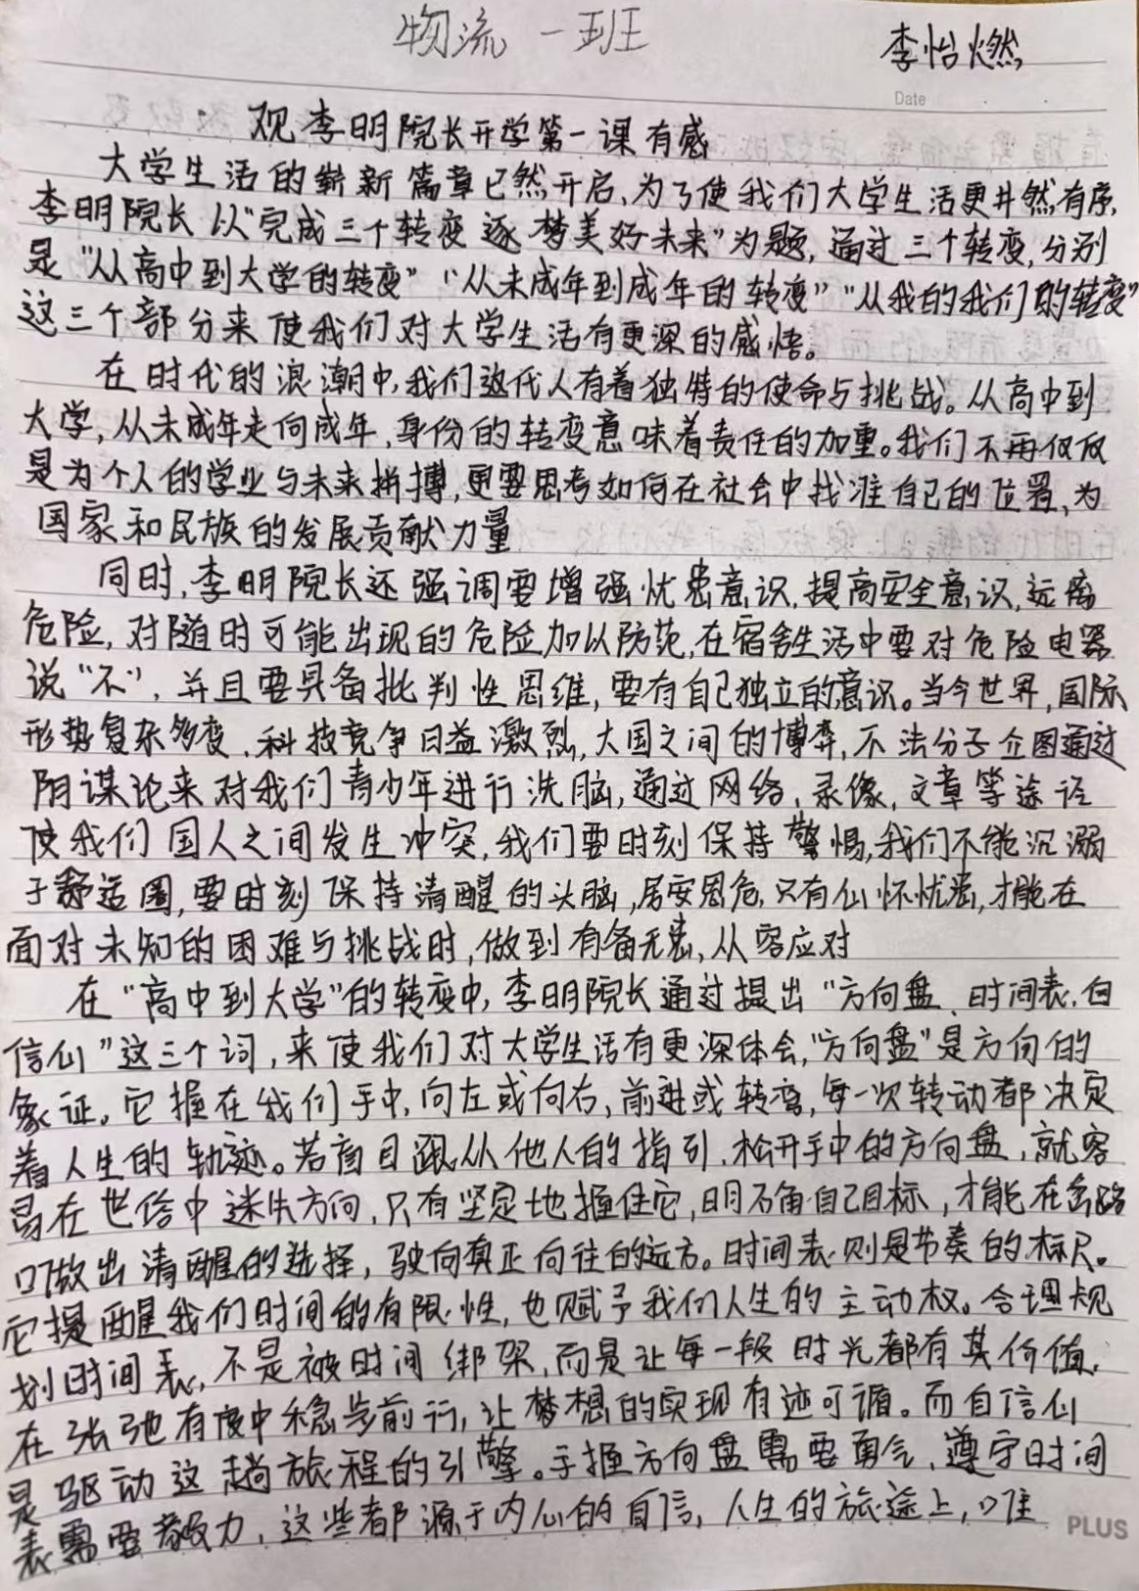 物流一班
李怡燃
Date
观李明院长开学第一课有感
大学生活的崭新篇章已然开启,为了使我们大学生活更井然有序,
李明院长以"完成三个转变逐梦美好未来"为题,通过三个转变,分别
是"从高中到大学的转变""从未成年到成年的转变""从我的我们的转变"
这三个部分来使我们对大学生活有更深的感悟。
在时代的浪潮中,我们这代人有着独特的使命与挑战。从高中到
大学,从未成年走向成年,身份的转变意味着责任的加重。我们不再仅仅
是为个人的学业与未来拼搏,更要思考如何在社会中找准自己的位置,为
国家和民族的发展贡献力量
同时,李明院长还强调要增强忧患意识,提高安全意识,远离
危险,对随时可能出现的危险加以防范,在宿舍生活中要对危险电器
说"不",并且要具备批判性思维,要有自己独立的意识。当今世界,国际
形势复杂多变,科技竞争日益激烈,大国之间的博弈,不法分子企图通过
阴谋论来对我们青少年进行洗脑,通过网络,录像,文章等途径
使我们国人之间发生冲突,我们要时刻保持警惕,我们不能沉溺
于舒适圈,要时刻保持清醒的头脑,居安思危,只有心怀忧患,才能在
面对未知的困难与挑战时,做到有备无患,从容应对
在"高中到大学"的转变中,李明院长通过提出"方向盘、时间表,自
信心"这三个词,来使我们对大学生活有更深体会,"方向盘"是方向的
象证。它握在我们手中,向左或向右,前进或转弯,每一次转动都决定
着人生的轨迹。若盲目跟从他人的指引,松开手中的方向盘,就容
易在世俗中迷失方向,只有坚定地握住它,明确自己目标,才能在岔路
口做出清醒的选择,驶向真正向往的远方。时间表则是节奏的标尺。
它提醒我们时间的有限性,也赋予我们人生的主动权。合理规
划时间表,不是被时间绑架,而是让每一段时光都有其价值,
在张弛有度中稳步前行,让梦想的实现有迹可循。而自信心
是驱动这趟旅程的引擎。手握方向盘需要勇气,遵守时间
表需要毅力,这些都源于内心的自信,人生的旅途上,唯
PLUS